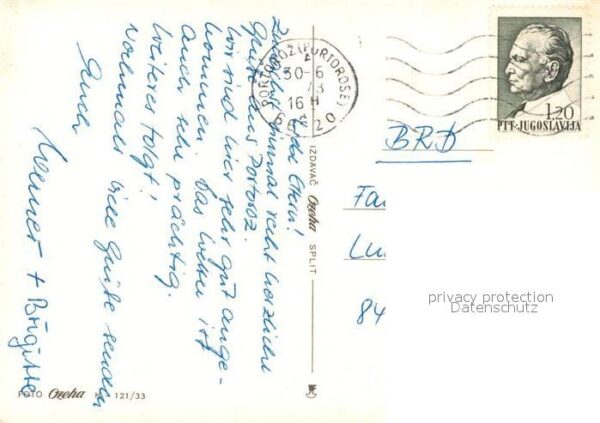 Liebe Eltern!
Zunächst einmal recht herzliche
Grüße aus Portoroz.
Wir sind hier sehr gut ange-
kommen. Das Wetter ist
auch sehr prächtig.
Weiteres folgt!
Nochmals viele Grüße senden
Euch
Werner + Brigitte
FOTO Ozeha 121/33
IZDAVAČ Ozeha SPLIT
PORTOROŽ (PORTOROSE)
30-6
73
16 H
66320
1,20
PTT-JUGOSLAVIJA
BRD
Fa
Lu
84
privacy protection
Datenschutz